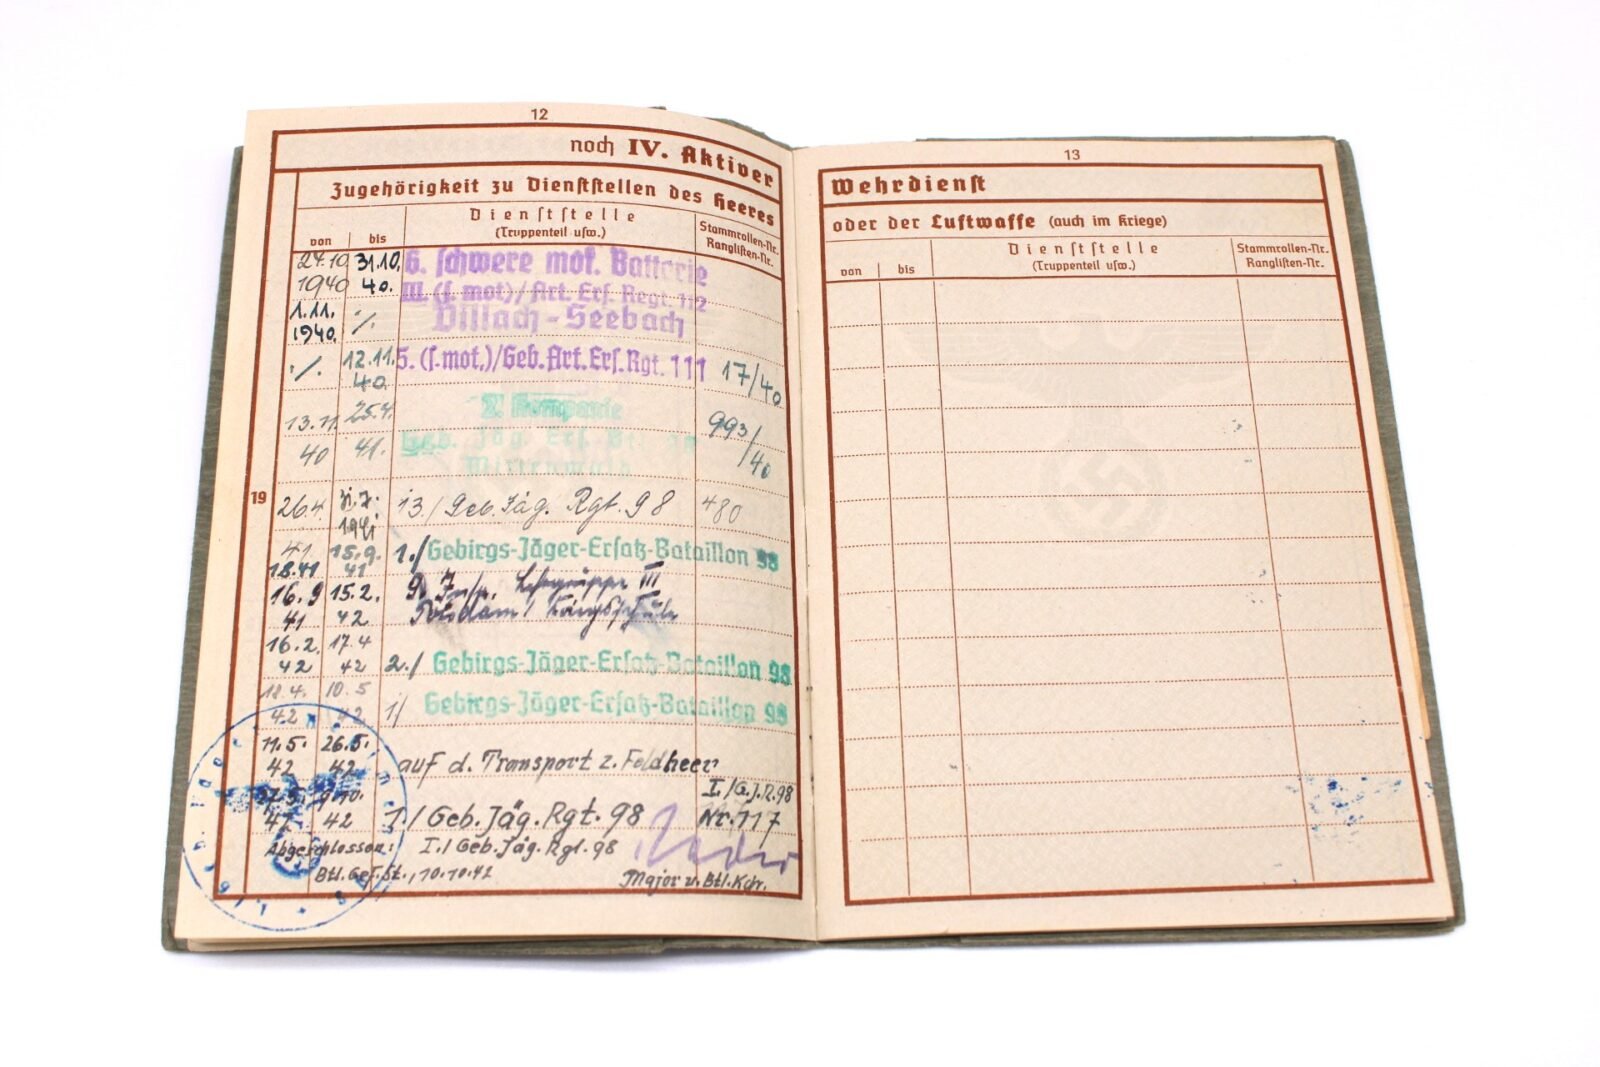 12
noch IV. Aktiver
Zugehörigkeit zu Dienststellen des Heeres
von
bis
Dienststelle
(Truppenteil usw.)
Stammrollen-Nr.
Ranglisten-Nr.
24.10. 31.10. 6. schwere mot. Batterie
1940 40. III. (s. mot)/Art. Ers. Regt. 112
1.11. ./. Villach-Seebach
1940.
./. 12.11. 5. (s. mot.)/Geb. Art. Ers. Rgt. 111 17/40
40.
13.11. 25.4. Kompanie 993/40
40 41. Geb. Jäg. Ers. Btl. 98
Mittenwald
19 26.4. 31.7. 13./Geb. Jäg. Rgt. 98 480
1941
41 15.9. 1./Gebirgs-Jäger-Ersatz-Bataillon 98
1.8.41 41
16.9 15.2. 9. Insp. Lehrgruppe III
41 42 Potsdam
16.2. 17.4 2./Gebirgs-Jäger-Ersatz-Bataillon 98
42 42
18.4. 10.5 1/ Gebirgs-Jäger-Ersatz-Bataillon 98
42 42
11.5. 26.5. auf d. Transport z. Feldheer
42 42
9.10. I./G.J.R.98
42 42 1/Geb. Jäg. Rgt. 98 Nr. 717
Abgeschlossen: I./Geb. Jäg. Rgt. 98
Btl. Gef. St., 10.10.42 Major u. Btl. Kdr.
13
Wehrdienst
oder der Luftwaffe (auch im Kriege)
von
bis
Dienststelle
(Truppenteil usw.)
Stammrollen-Nr.
Ranglisten-Nr.